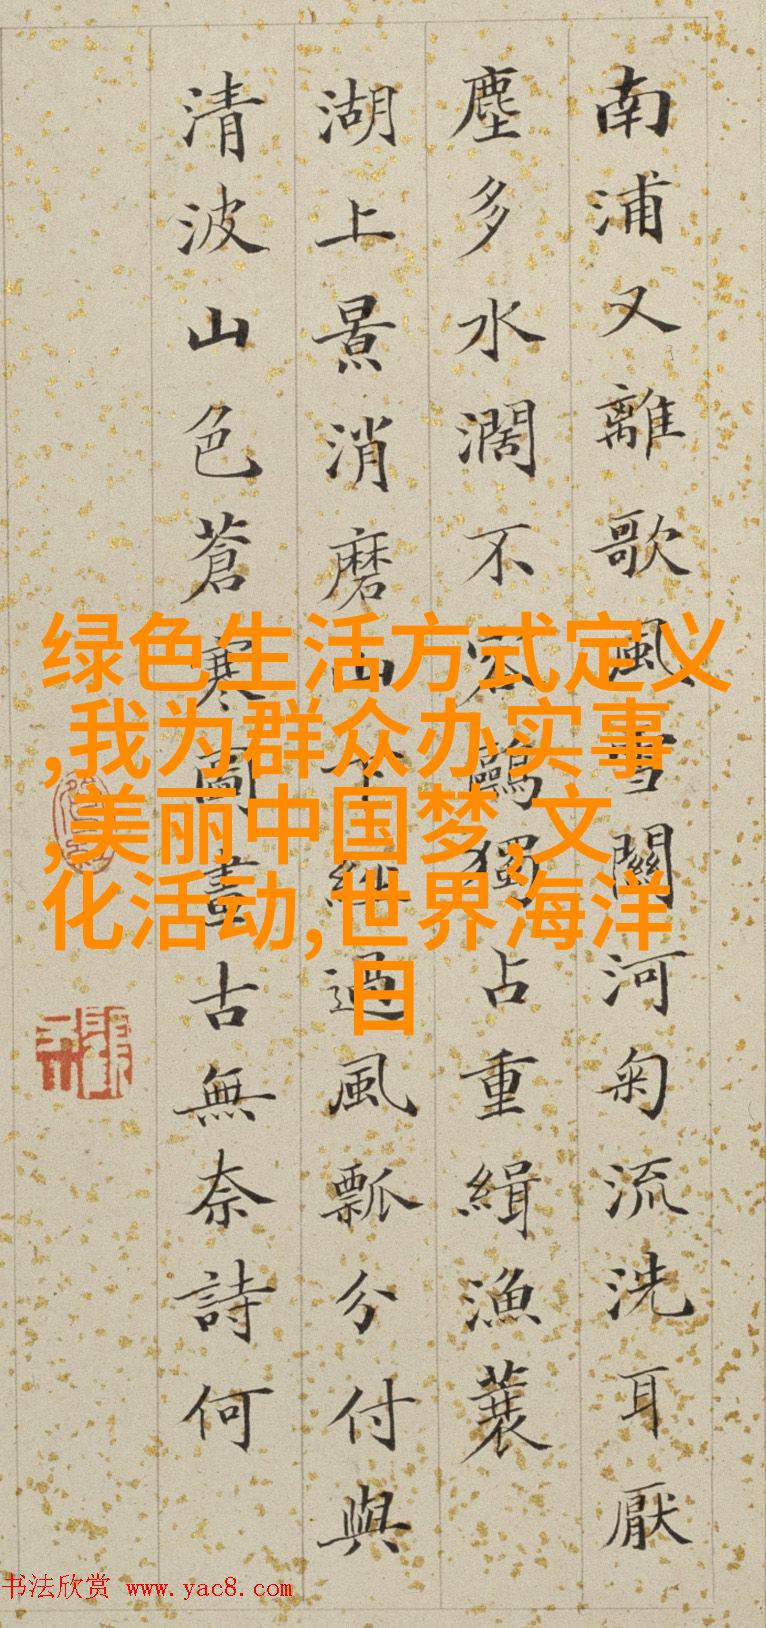 南浦又離歌風雪關河菊流洗耳厭
塵多水濶不容鷗獨占重緝漁蓑
湖上景消磨山下經過風瓢分付與
清波山色蒼寒圖畫古無奈詩何
绿色生活方式定义
,我为群众办实事
,美丽中国梦,文
化活动,世界海洋
日
书法欣赏 www.yac8.com